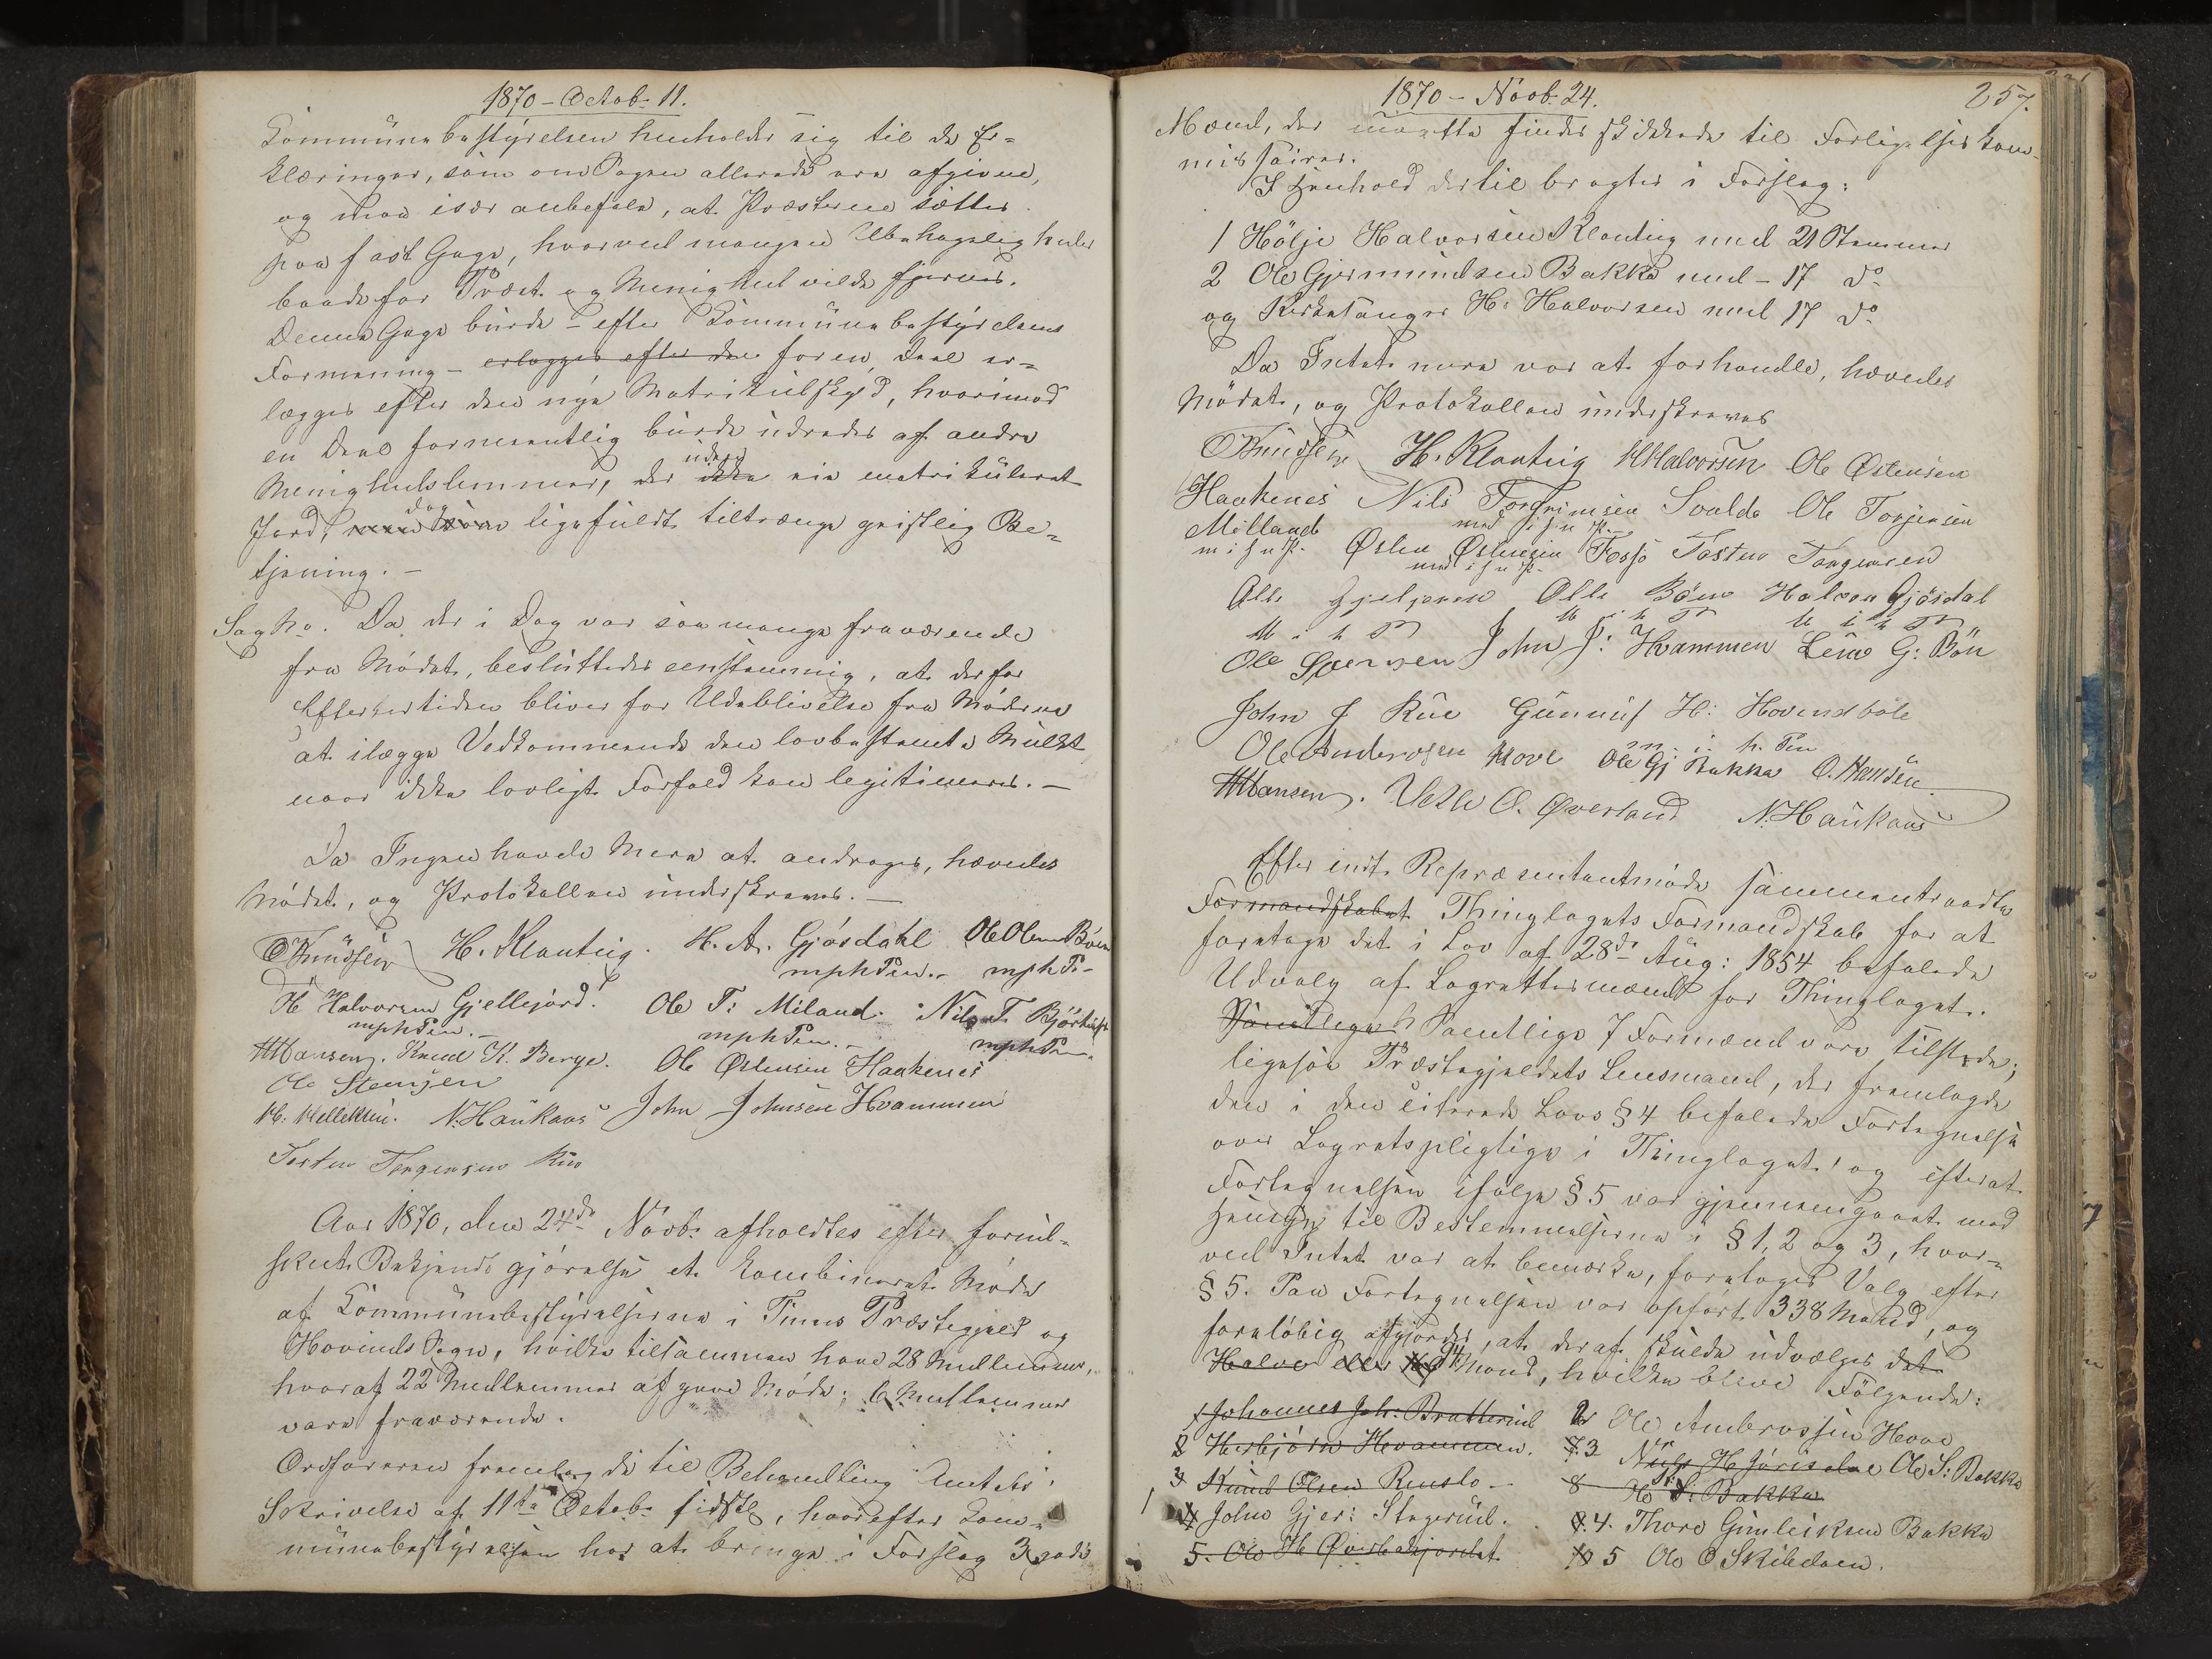 1870 - Octob. 11.
Communebestyrelsen henholder sig til de Er=
klæringer, som om Sagen allerede ere afgivne,
og maa især anbefale, at Præsterne sættes
paa fast Gage, hvorved mangen Ubehagelighed
baade for Præst og Menighed vilde fjernes.
Denne Gage burde - efter Communebestyrelsens
Formening - erlægges efter den for en Deel er=
lægges efter den nye Matrikulskyld, hvorimod
en Deel formentlig burde udredes af andre
uden
Menighedslemmer, der ikke eie matrikuleret
dog
Jord, men som ligefuldt tiltrænge geistlig Be=
tjening. -
Sag No. Da der i Dag var saa mange fraværende
fra Mödet, besluttedes eenstemmig, at der for
Eftertiden bliver for Udeblivelse fra Möderne
at ilægge Vedkommende den lovbestemte Mulkt
naar ikke lovligt Forfald kan legitimeres. -
Da Ingen havde Mere at andrage, hævedes
Mödet, og Protokollen underskreves. -
O Knudsen H. Klonteig. H. A. Gjösdahl Ole Olsen Böen
mphPen. - mphP -
H Halvorsen Gjellejord. Ole T: Miland. Nils T.
mphPen. - mphPen. - mphPen.
HHansen. Knud K. Berge. Ole Østensen Haakenes
Ole
H. Kittelsen. N. Haukaas John Johnsen Hvammen
Tosten Torgersen Rue
Aar 1870, den 24de Novb. afholdtes efter forud=
skeet Bekjendtgjörelse et kombineret Möde
af Communebestyrelserne i Tinns Præstegjeld og
Hovinds Sogn, hvilke tilsammen have 28 Medlemmer,
hvoraf 22 Medlemmer afgave Möde; 6 Medlemmer
vare fraværende.
Ordföreren fremlagde til Behandling Amtets
Skrivelse af 11te Octob. sidstl, hvorefter Com=
munebestyrelsen har at bringe i Forslag 3 gode
1870 - Novb. 24. 257.
Mænd, der maatte findes skikkede til Forligelseskom-
missairer.
I Henhold dertil bragtes i Forslag:
1 Hölje Halvorsen Klonteig med 21 Stemmer
2 Ole Gjermundsen Bakka med - 17 do
og Kirkesanger H. Halvorsen med 17 do
Da Intet mere var at forhandle, hævedes
Mödet, og Protokollen underskreves
O Knudsen H. Klonteig HHalvorsen Ole Østensen
Haakenes Nils Torgrimsen Ole Torjersen
med i h P.
Milland Østen Østensen Tosten Torgersen
m i h P. med i h P.
Olle Böen Halvor Gjösdal
M i h P M i h P M i h P
Ole John J: Hvammen G: Bön
John J Rue Gunnuf H: Hovindböle
m. i. h. Pen
Ole Ambrosen Hove Ole Gj Bakka O. Hansen
HHansen. Vetle O. Øverland N. Haukaas
Efter endt Repræsentantmöde sammentraadte
Formandskabet Thinglagets Formandskab for at
foretage det i Lov af 28de Aug: 1854 befalede
Udvalg af Lagrettesmænd for Thinglaget.
Samtlige Samtlige 7 Formænd vare tilstede;
ligesaa Præstegjeldets Lensmand, der fremlagde
den i den citerede Lovs § 4 befalede Fortegnelse
over Lagretspligtige i Thinglaget, og efterat
Fortegnelsen ifölge § 5 var gjennemgaaet med
Hensyn til Bestemmelserne i § 1, 2 og 3, hvor=
ved Intet var at bemærke, foretoges Valg efter
§ 5. Paa Fortegnelsen var opfört 338 Mand, og
forelöbig afgjordes, at deraf skulde udvælges det
94
Halve eller Mand, hvilke bleve Fölgende:
1 Johannes Joh. Bratterud
2 Herbjörn Hvammen.
3 Knud Olsen Renslo -
1 4 John Gjer: Stegerud.
5. Ole H
2 Ole Ambrosen Hove
7. 3 Ole S: Bakka
8 Ole S: Bakka
9. 4. Thore Gunleiksen Bakka
10 5 Ole O Skibdaen.